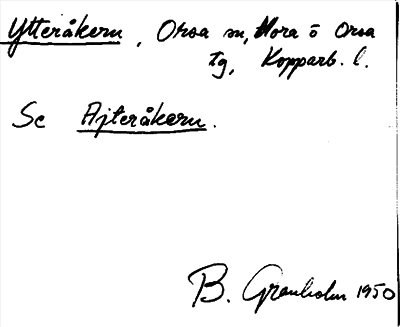 Ytteråkern, Orsa sn, Mora o Orsa
tg, Kopparb. l.
Se Ajteråkern.
B. Granholm 1950